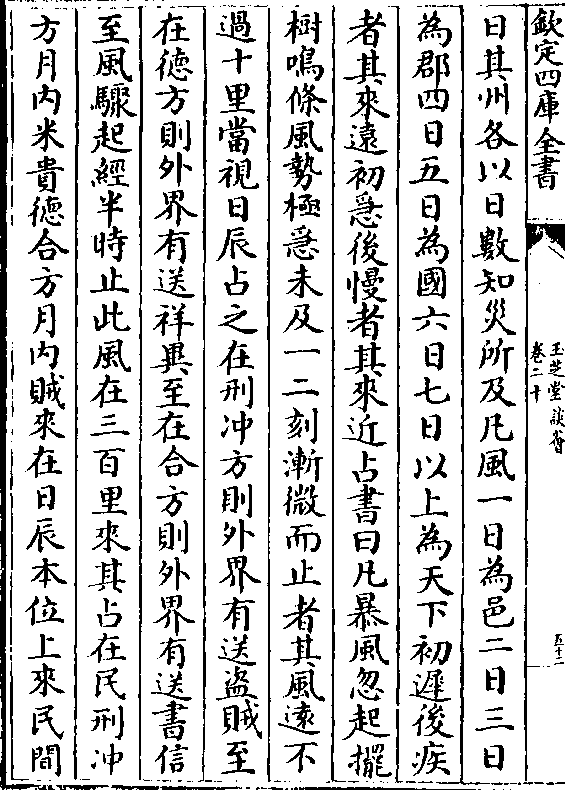 欽定四庫全書
玉芝堂談薈
卷二十
五十二
日其州各以日數知災所及凡風一日為邑二日三日
為郡四日五日為國六日七日以上為天下初遲後疾
者其來遠初急後慢者其來近占書曰凡暴風忽起擺
樹鳴條風勢極急未及一二刻漸微而止者其風遠不
過十里當視日辰占之在刑冲方則外界有送盜賊至
在徳方則外界有送祥異至在合方則外界有送書信
至風驟起經半時止此風在三百里來其占在民刑冲
方月内米貴徳合方月内賊來在日辰本位上來民間